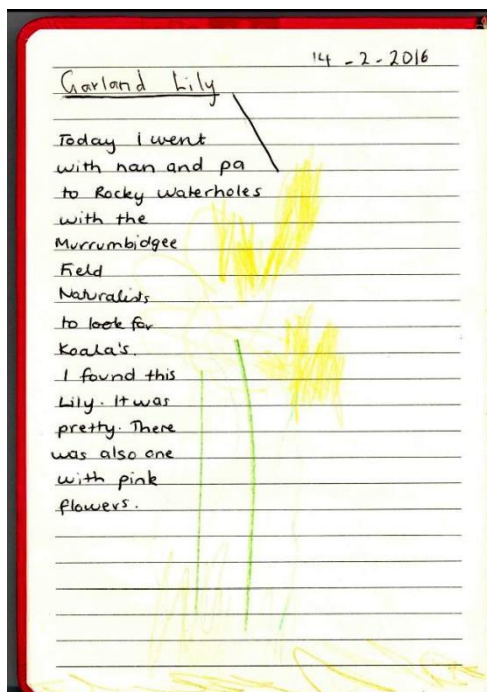 14-2-2016
Garland Lily
Today i went
with nan and pa
to Rocky Waterholes
with the
Murrumbidgee
Field
Naturalists
to look for
Koala's.
I found this
Lily. It was
pretty. There
was also one
with pink
flowers.